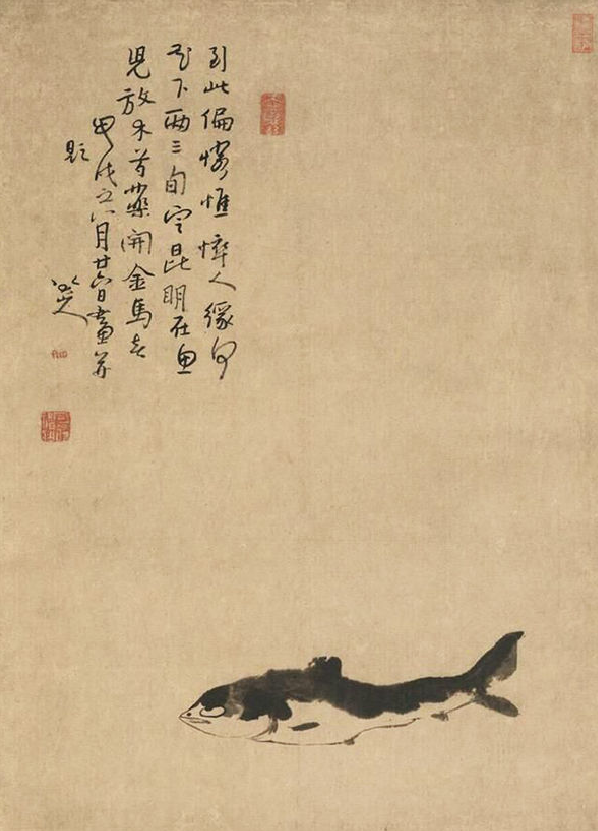 到此偏憐憔悴人緣何
花下兩三旬定昆明在魚
兒放木芍藥開金馬春
甲戌之月廿六日畫并
題
八大山人